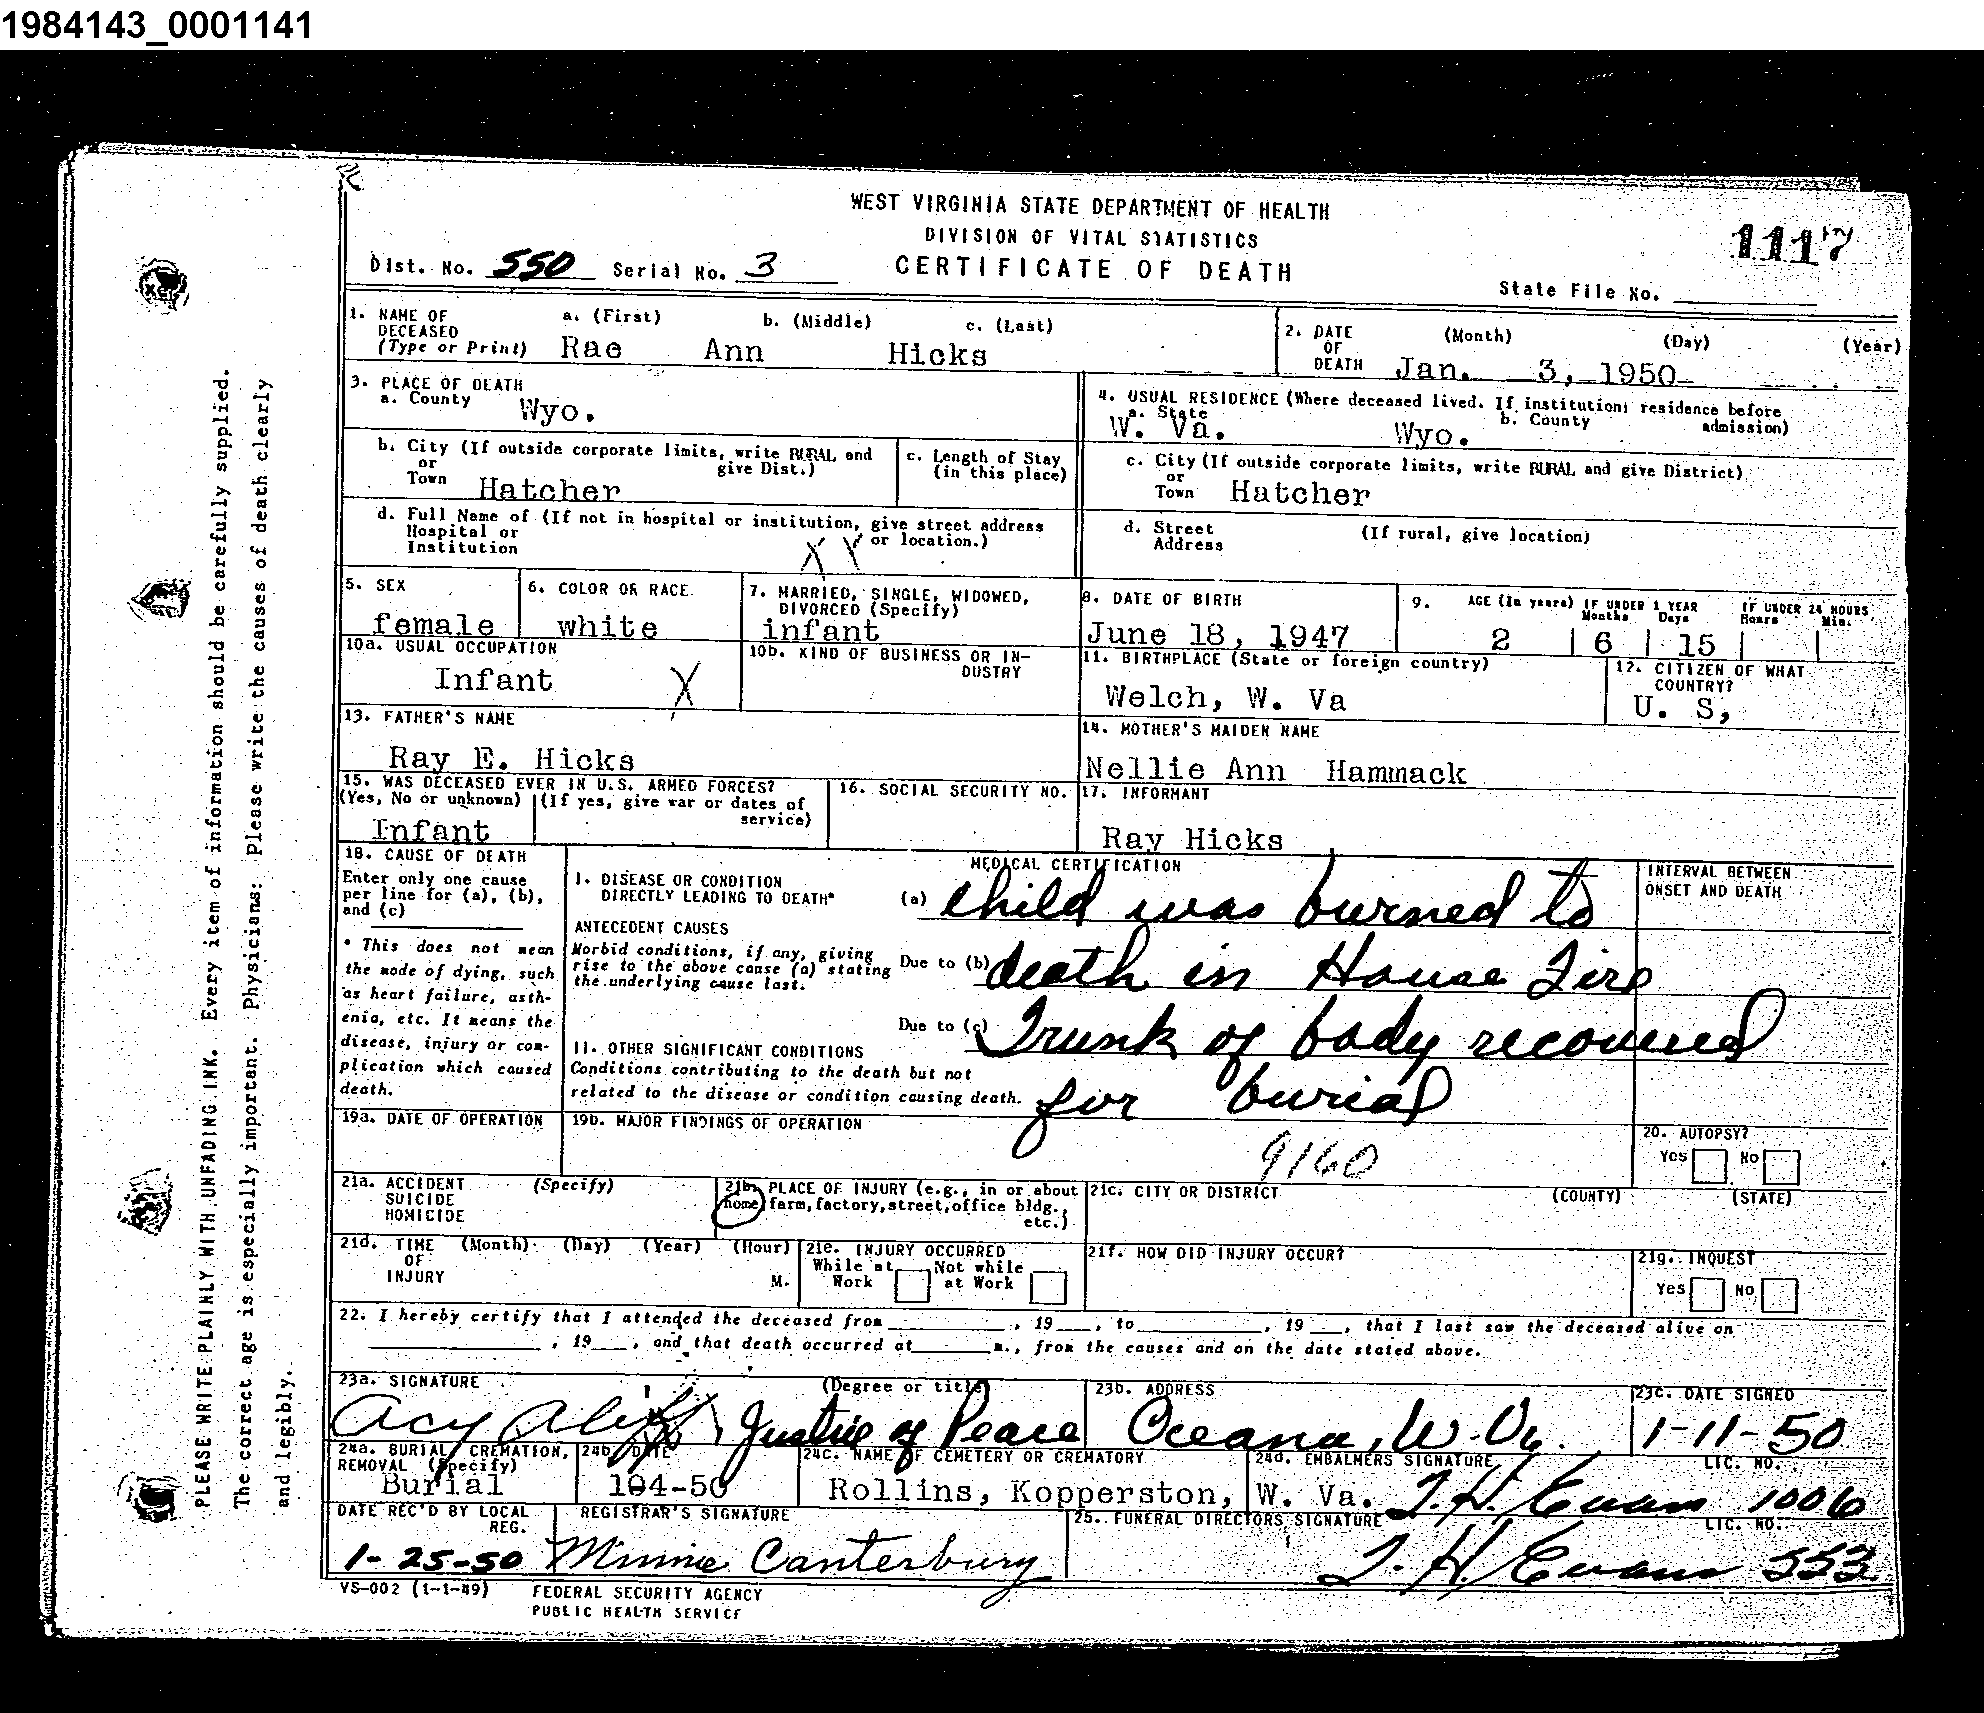 1984143_0001141
WEST VIRGINIA STATE DEPARTMENT OF HEALTH
DIVISION OF VITAL STATISTICS
1117
Dist. No. 550 Serial No. 3 CERTIFICATE OF DEATH
State File No.
1. NAME OF DECEASED (Type or Print) a. (First) b. (Middle) c. (Last)
Rae Ann Hicks
2. DATE OF DEATH (Month) (Day) (Year)
Jan. 3, 1950
3. PLACE OF DEATH
a. County Wyo.
4. USUAL RESIDENCE (Where deceased lived. If institution: residence before admission)
a. State W. Va. b. County Wyo.
b. City (If outside corporate limits, write RURAL and give Dist.)
or Town Hatcher
c. Length of Stay (in this place)
c. City (If outside corporate limits, write RURAL and give District)
or Town Hatcher
d. Full Name of (If not in hospital or institution, give street address or location.)
Hospital or Institution X X
d. Street Address (If rural, give location)
5. SEX
female
6. COLOR OR RACE
white
7. MARRIED, SINGLE, WIDOWED, DIVORCED (Specify)
infant
8. DATE OF BIRTH
June 18, 1947
9. AGE (In years) IF UNDER 1 YEAR Months Days IF UNDER 24 HOURS Hours Min.
2 6 15
10a. USUAL OCCUPATION
Infant X
10b. KIND OF BUSINESS OR INDUSTRY
11. BIRTHPLACE (State or foreign country)
Welch, W. Va
12. CITIZEN OF WHAT COUNTRY?
U. S,
13. FATHER'S NAME
Ray E. Hicks
14. MOTHER'S MAIDEN NAME
Nellie Ann Hammack
15. WAS DECEASED EVER IN U.S. ARMED FORCES?
(Yes, No or unknown) (If yes, give war or dates of service)
Infant
16. SOCIAL SECURITY NO.
17. INFORMANT
Ray Hicks
18. CAUSE OF DEATH
Enter only one cause per line for (a), (b), and (c)
* This does not mean the mode of dying, such as heart failure, asthenia, etc. It means the disease, injury or complication which caused death.
MEDICAL CERTIFICATION
INTERVAL BETWEEN ONSET AND DEATH
I. DISEASE OR CONDITION DIRECTLY LEADING TO DEATH*
(a) Child was burned to
ANTECEDENT CAUSES
Morbid conditions, if any, giving rise to the above cause (a) stating the underlying cause last.
Due to (b) death in House Fire
Due to (c) Trunk of body recovered
II. OTHER SIGNIFICANT CONDITIONS
Conditions contributing to the death but not related to the disease or condition causing death.
for burial
19a. DATE OF OPERATION
19b. MAJOR FINDINGS OF OPERATION
9160
20. AUTOPSY?
Yes No
21a. ACCIDENT SUICIDE HOMICIDE (Specify)
21b. PLACE OF INJURY (e.g., in or about home, farm, factory, street, office bldg., etc.)
21c. CITY OR DISTRICT (COUNTY) (STATE)
21d. TIME OF INJURY (Month) (Day) (Year) (Hour) M.
21e. INJURY OCCURRED
While at Work Not while at Work
21f. HOW DID INJURY OCCUR?
21g. INQUEST
Yes No
22. I hereby certify that I attended the deceased from , 19 , to , 19 , that I last saw the deceased alive on
, 19 , and that death occurred at m., from the causes and on the date stated above.
23a. SIGNATURE (Degree or title)
Acy Aliff Justice of Peace
23b. ADDRESS
Oceana, W. Va.
23c. DATE SIGNED
1-11-50
24a. BURIAL, CREMATION, REMOVAL (Specify)
Burial
24b. DATE
104-50
24c. NAME OF CEMETERY OR CREMATORY
Rollins, Kopperston, W. Va.
24d. EMBALMERS SIGNATURE LIC. NO.
T. H. Evans 1006
DATE REC'D BY LOCAL REG.
1-25-50
REGISTRAR'S SIGNATURE
Minnie Canterbury
25. FUNERAL DIRECTORS SIGNATURE LIC. NO.
T. H. Evans 553
VS-002 (1-1-49) FEDERAL SECURITY AGENCY
PUBLIC HEALTH SERVICE
PLEASE WRITE PLAINLY WITH UNFADING INK. Every item of information should be carefully supplied.
The correct age is especially important. Physicians: Please write the causes of death clearly
and legibly.